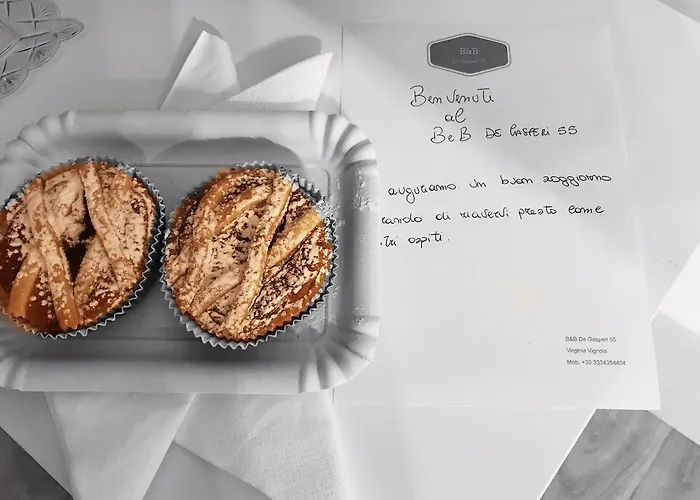 B&B
De Gasperi 55
Benvenuti
al
BeB DE GASPERI 55
auguriamo un buon soggiorno
rando di riavervi presto come
tri ospiti.
B&B De Gasperi 55
Virginia Vignola
Mob. +39 3334354404